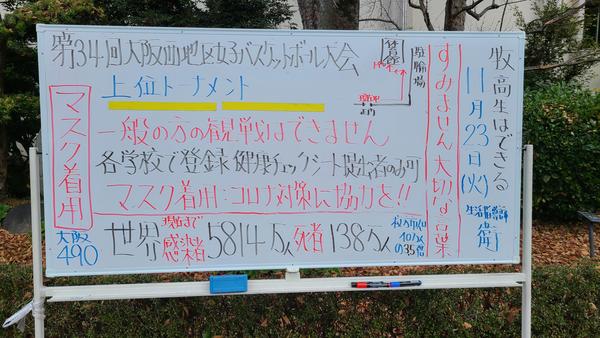 第34回大阪私立地区女子バスケットボール大会
上位トーナメント
一般の方の観戦はできません
各学校で登録 健康チェックシート提出者のみ可
マスク着用:コロナ対策に協力を!!
世界 現在まで 感染者 5814万人 死者 138万人
マスク着用
大阪
490
駐輪場
正門
すみません 大切な言葉
牧高生はできる
11月23日(火)